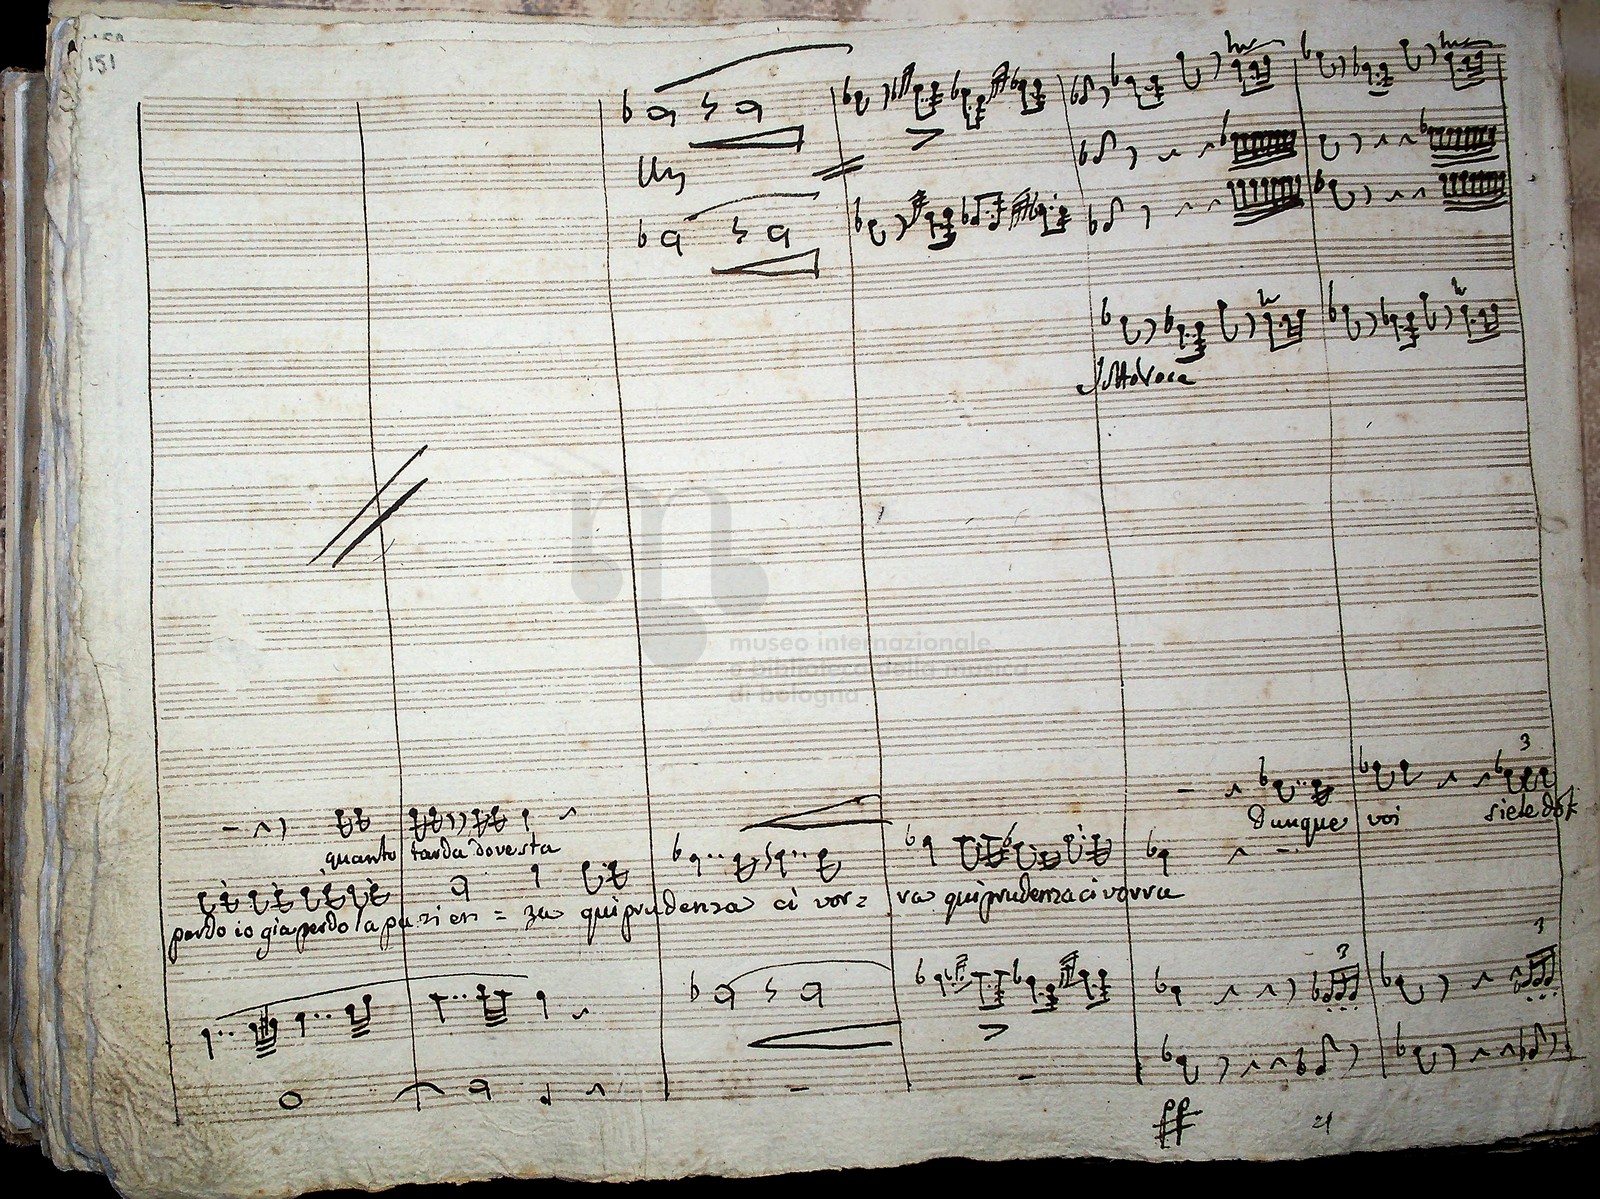 151
Un
Sottovoce
museo internazionale
e biblioteca della musica
di bologna
3
dunque voi siele dot
quanto tarda dove sta
perdo io gia perdo la pazien = za qui prudenza ci vor = ra qui prudenza ci vorra
3
3
ff